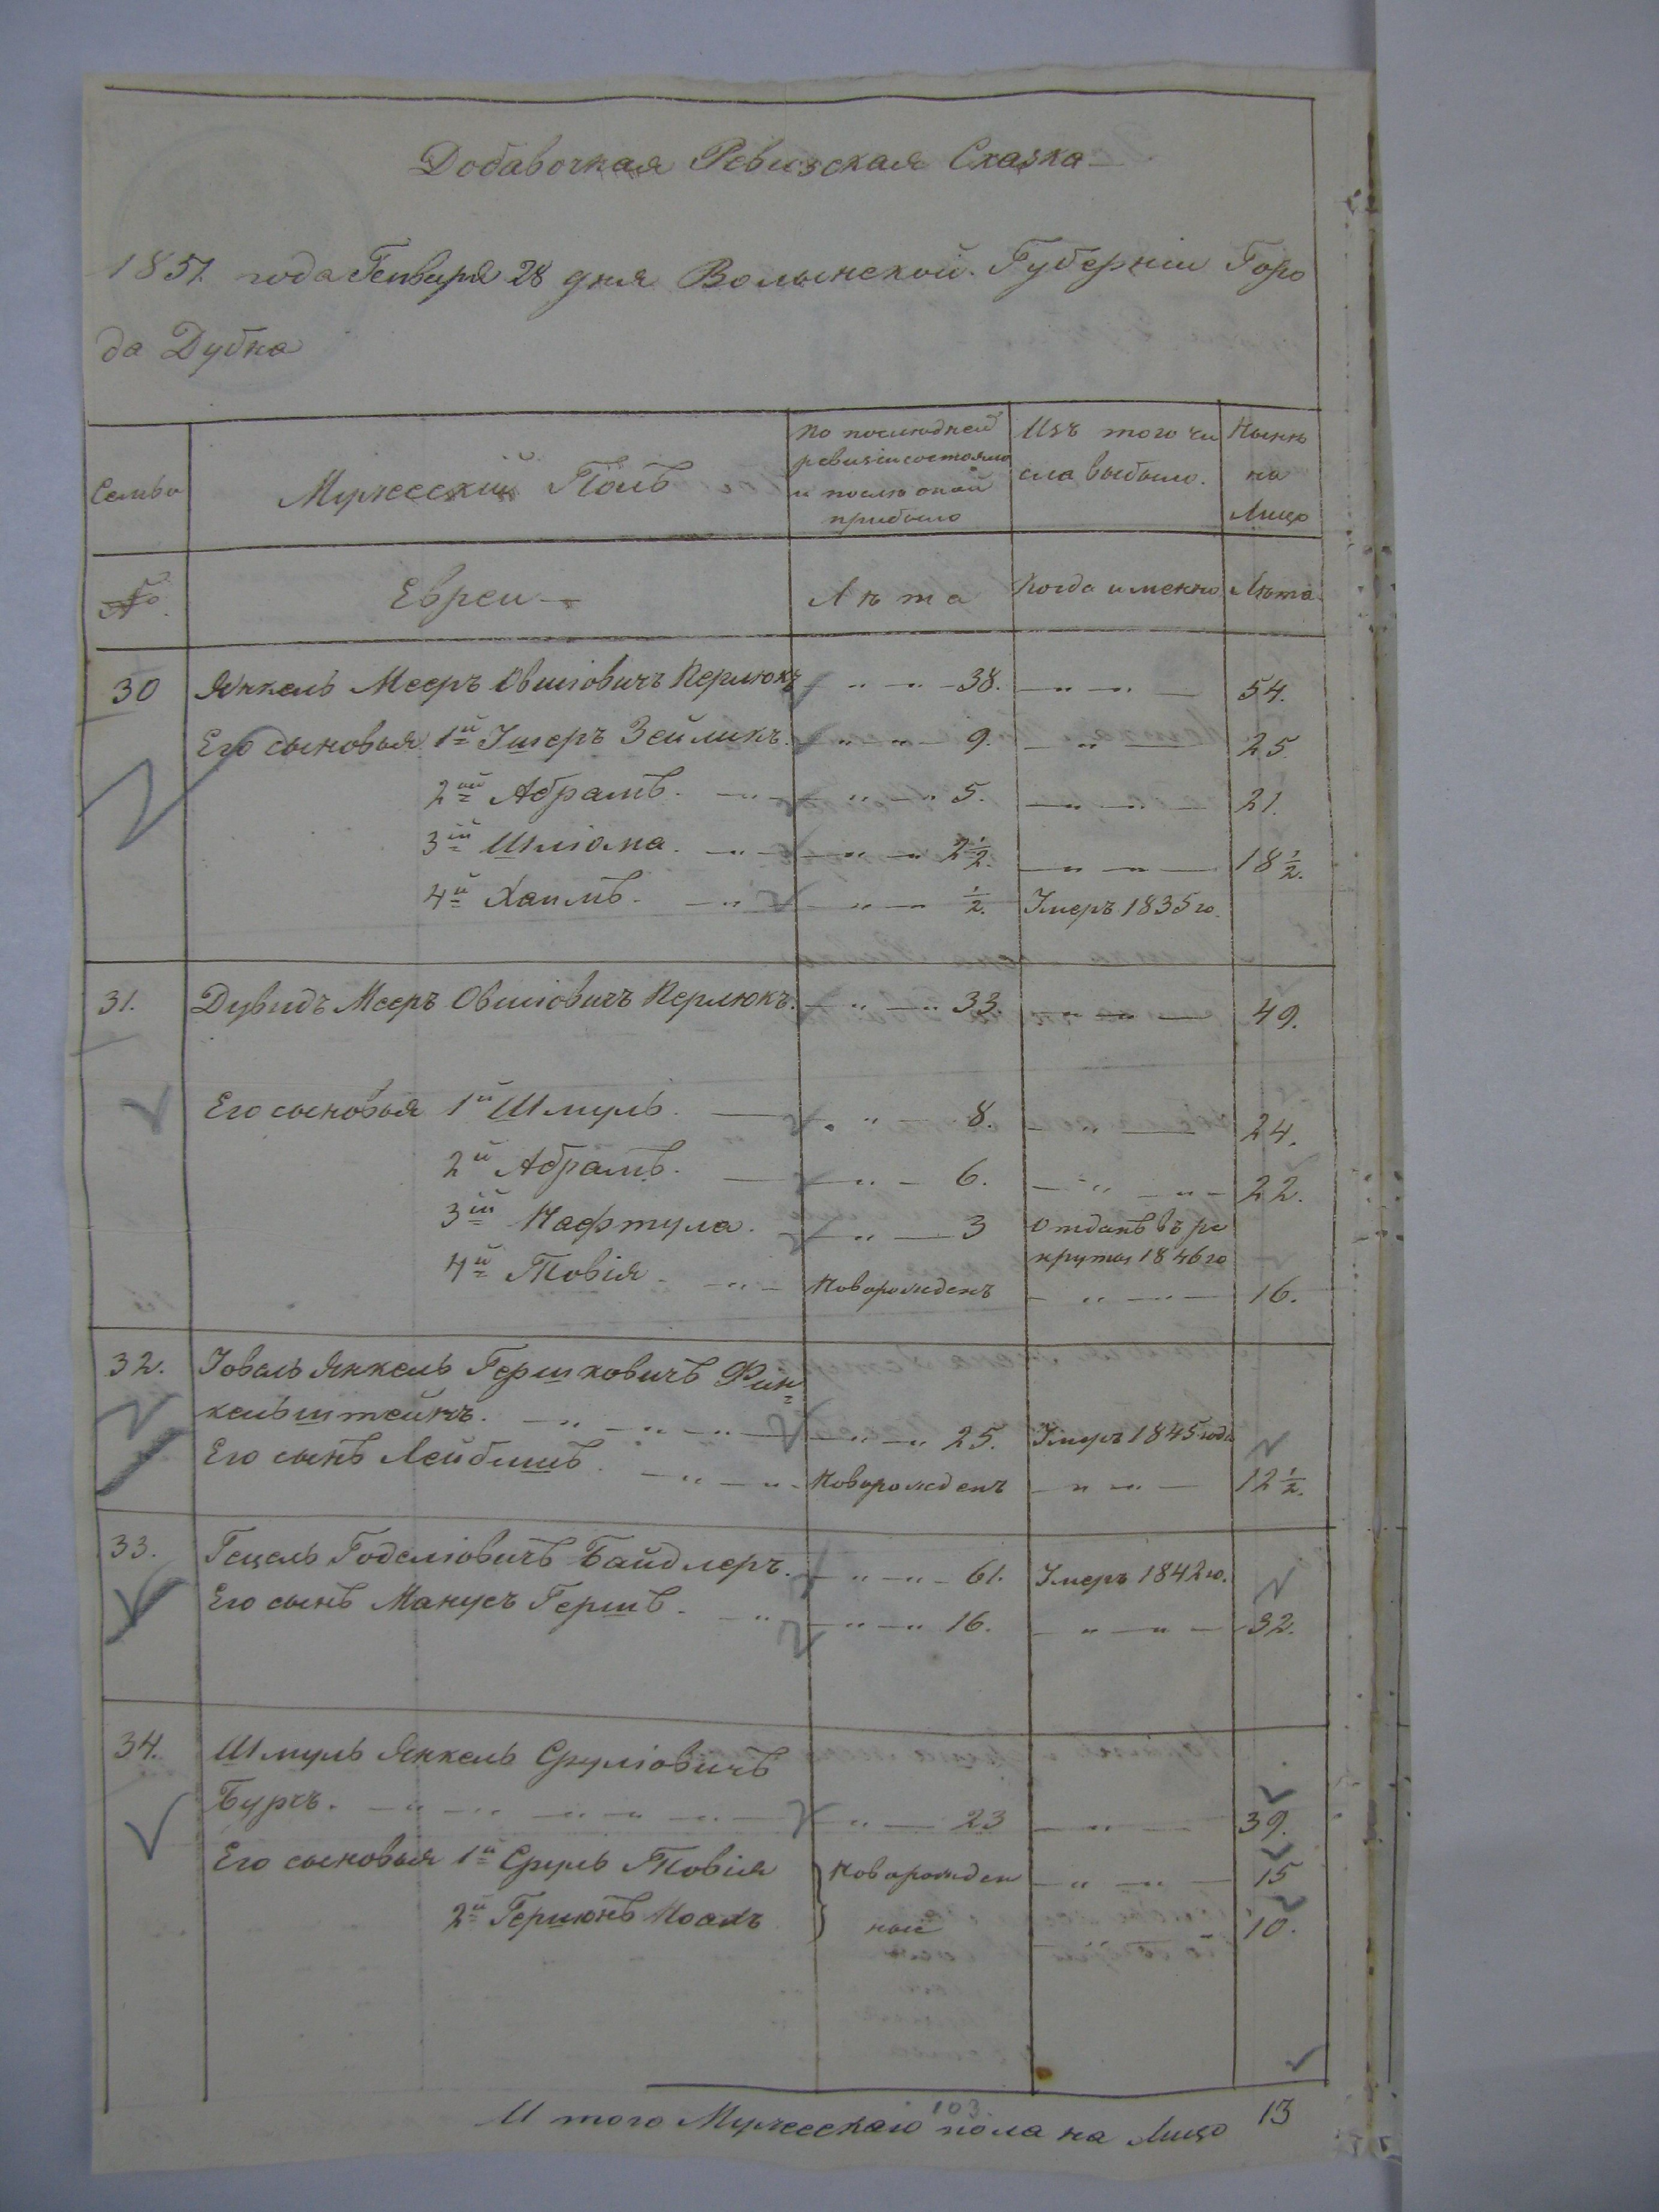 Добавочная Ревизская Сказка
1851 года Генваря 28 дня Волынской Губернiи Горо
да Дубна
Семьи
Мужескiй Полъ
По последней
ревизiи состояло
и после оной
прибыло
Изъ того чи
сла выбыло.
Нынѣ
на
Лицо
№
Евреи
Лѣта
Когда именно
Лѣта
30 Янкель Мееръ Овшiовичъ Перлюкъ 38. 54.
Его сыновья 1й Iшеръ Зейликъ. 9. 25
2ой Абрамъ. 5. 21.
3iй Шлiома. 2½. 18½.
4й Хаимъ. ½. Умеръ 1835 го.
31. Дувидъ Мееръ Овшiовичъ Перлюкъ. 33. 49.
Его сыновья 1й Шмуль. 8. 24.
2й Абрамъ. 6. 22.
3iй Нафтула. 3 Отданъ въ ре
круты 1846 го
4й Товiя. Новорожденъ 16.
32. Iовель Янкель Гершковичъ Фин=
кельштейнъ. 25. Умеръ 1845 года
Его сынъ Лейбишъ. Новорожденъ 12½.
33. Гецель Годелiовичъ Байдлеръ. 61. Умеръ 1842 го.
Его сынъ Манусъ Гершъ. 16. 32.
34. Шмуль Янкель Срулiовичъ
23 39.
Его сыновья 1й Сруль Товiя Новорожден 15
2й Гершонъ ные 10.
103.
И того Мужескаго пола на Лицо 13